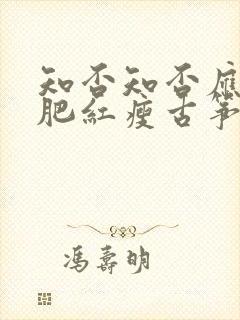 知否知否應
肥紅瘦古箏
馮壽明